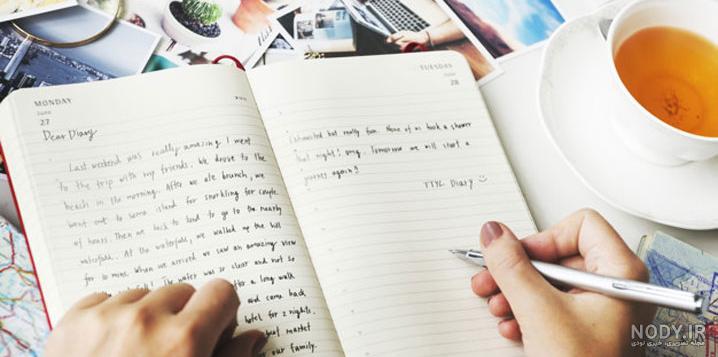 MONDAY
June
27
Dear Diary
Last weekend was really amazing. I went
to the trip with my friends. We drove to the
beach in the morning. After we ate brunch, we
went out to some island for snorkling for couple
of hours. Then we back to land to go to the nearby
waterfall. At the waterfall, we walked up the hill
for 10 mins. When we arrived we saw an amazing view
The water was so clear and not so
after a long walk
and came back
hotel for 2 nights.
market
our family.
TUESDAY
June
28
exhausted but really fun. None of us took a shower
that night! omg. Tomorrow we will start a
journey again!!
TTYL Diary
NODY.IR
مجله تصویری، خبری نودی